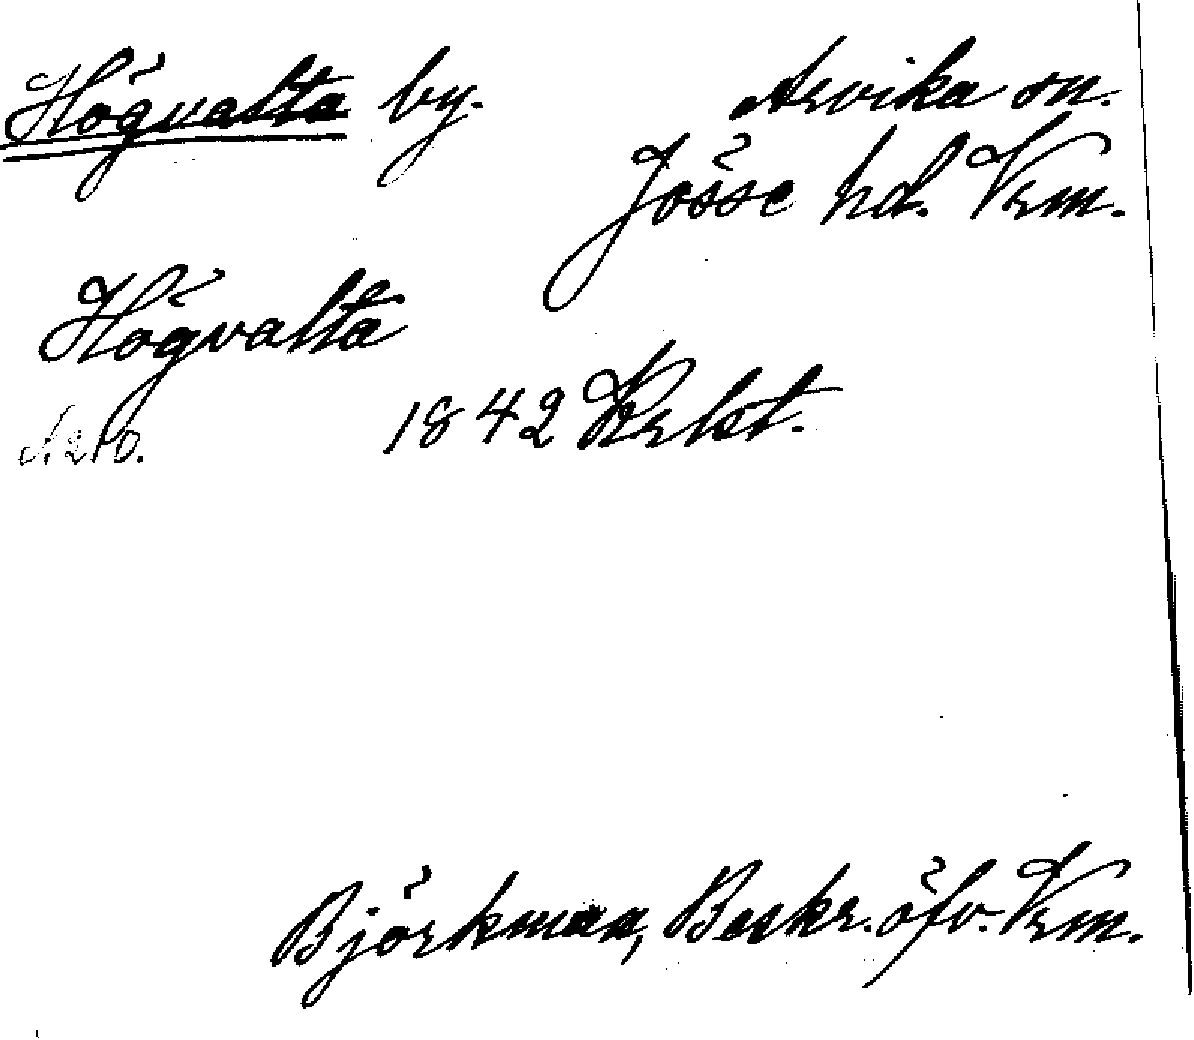 Högvalta by. Arvika sn.
Jösse hd. Vrm.
Högvalta
1842 Krlst.
Björkman, Beskr. öfv. Vrm.